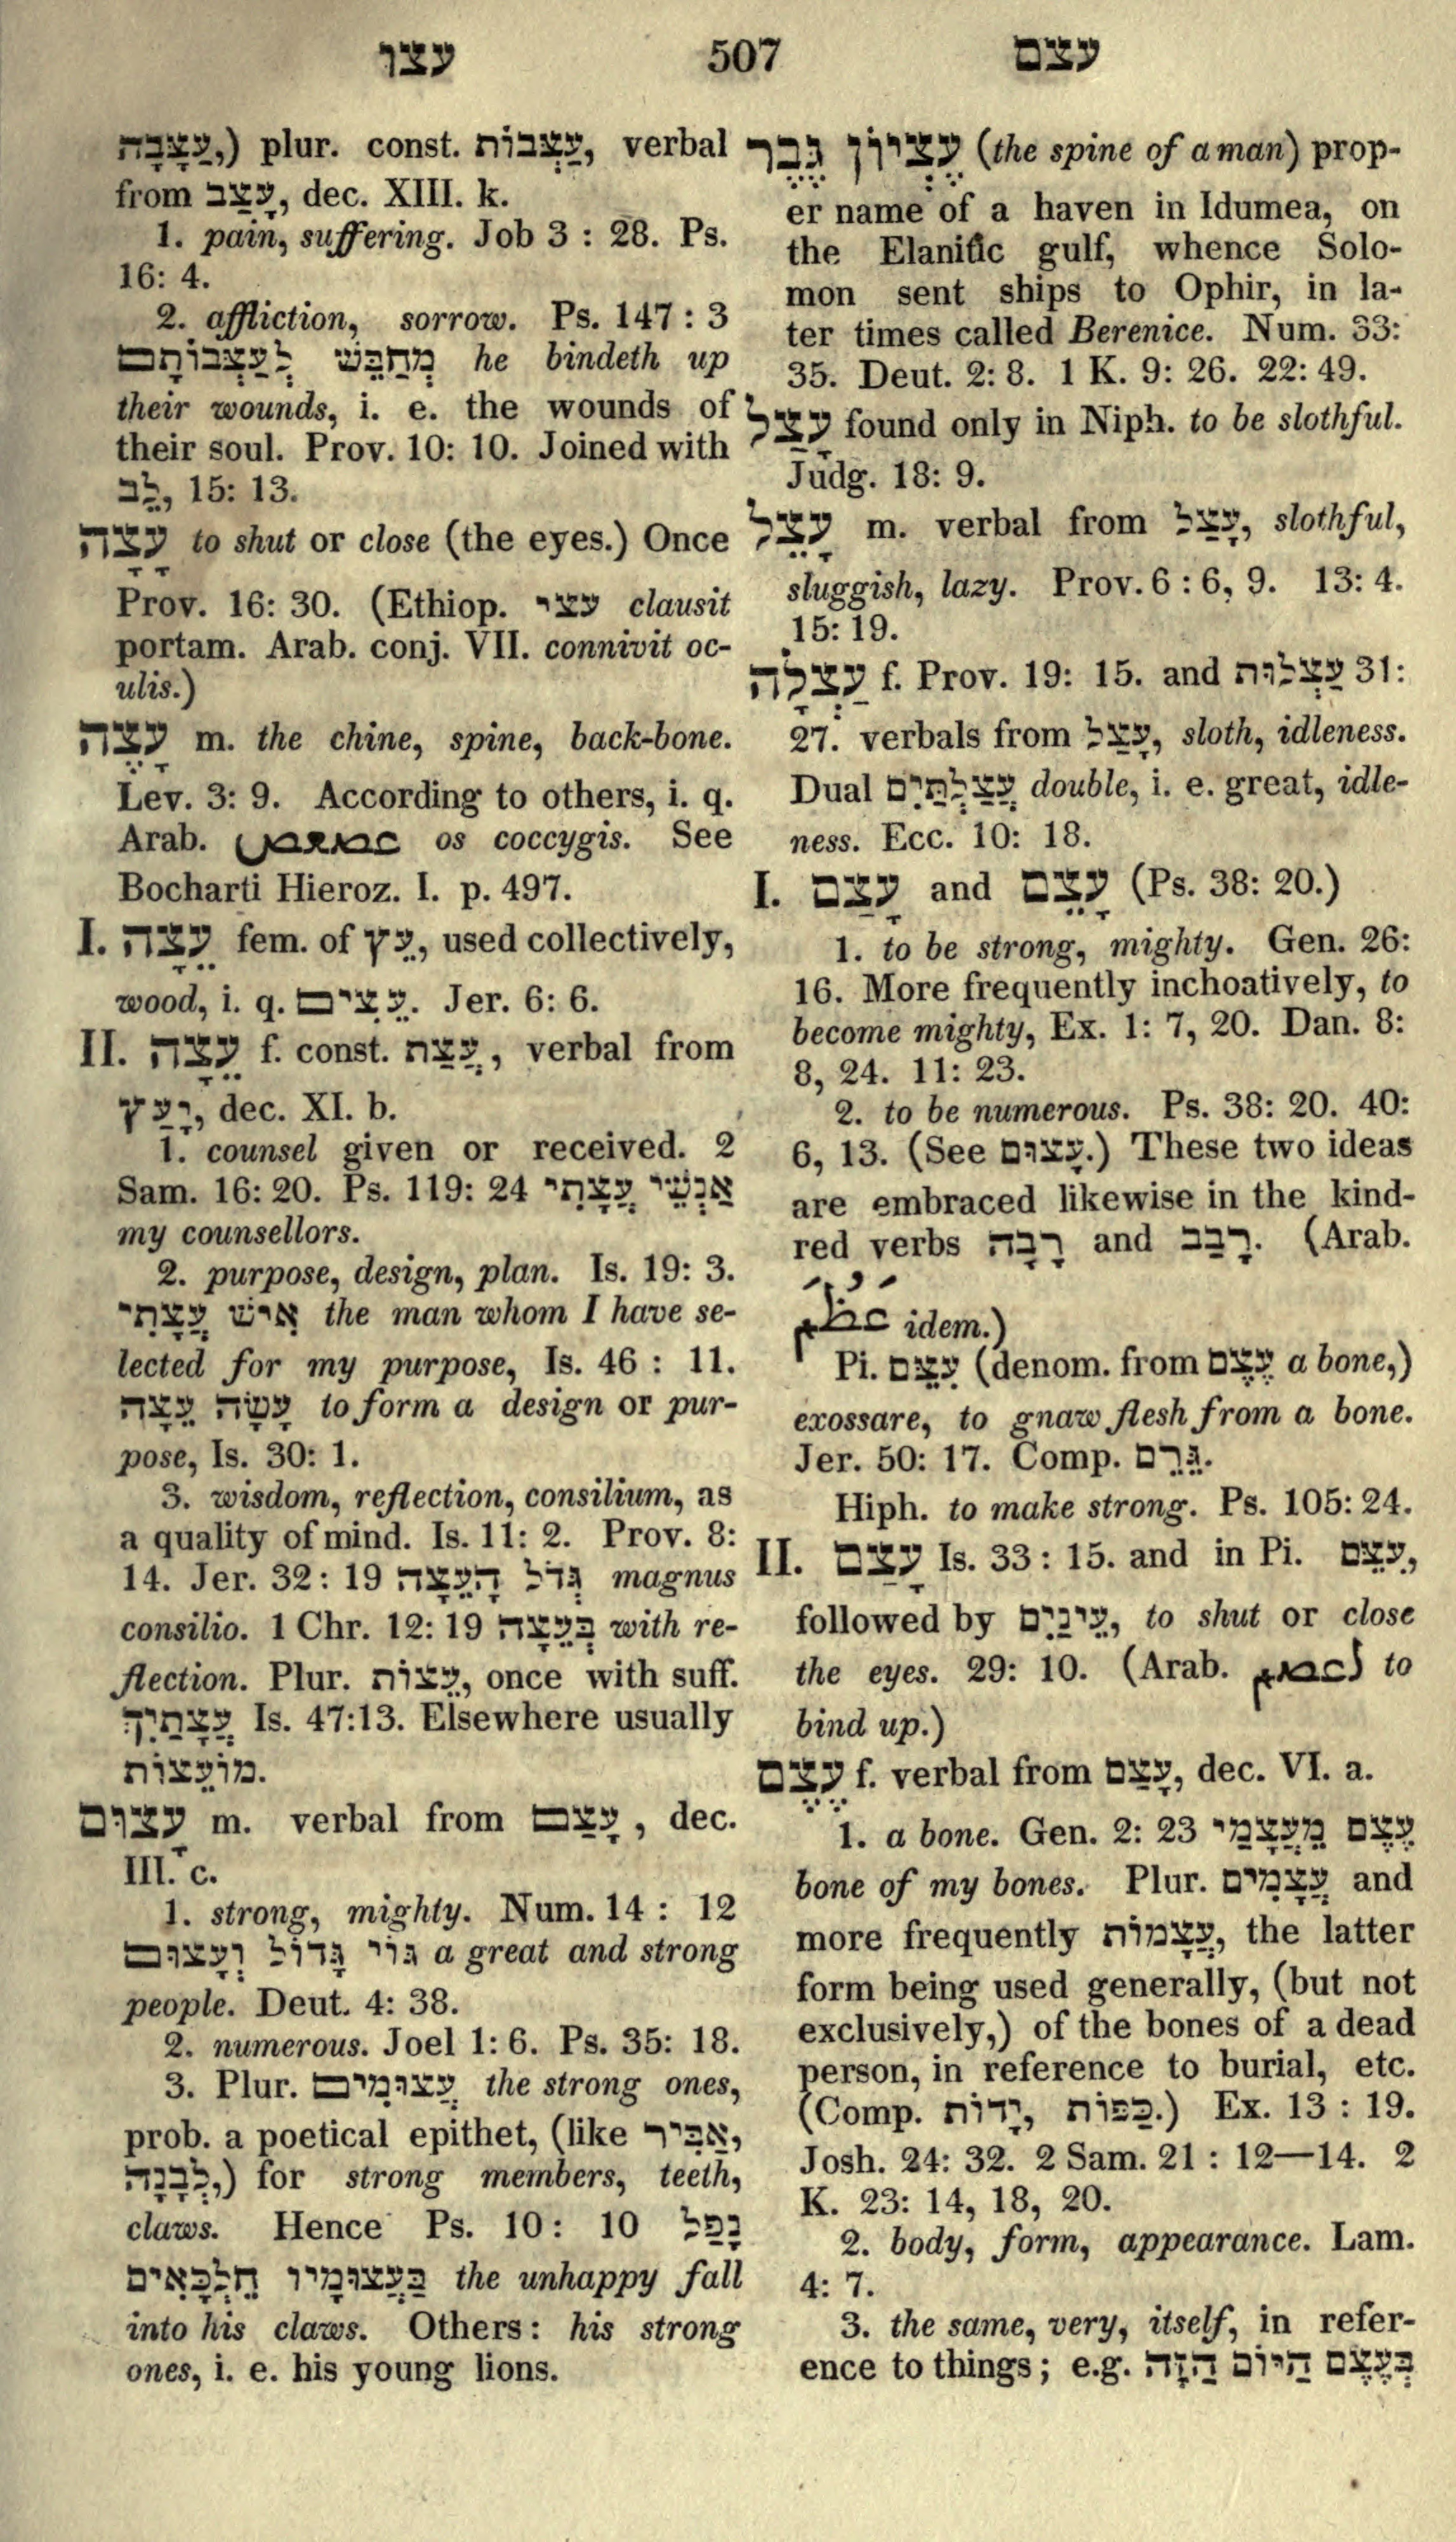 עצו 507 עצם
עַצָּבָה,) plur. const. עַצְּבוֹת, verbal
from עָצַב, dec. XIII. k.
1. pain, suffering. Job 3 : 28. Ps.
16: 4.
2. affliction, sorrow. Ps. 147 : 3
מְחַבֵּשׁ לְעַצְּבוֹתָם he bindeth up
their wounds, i. e. the wounds of
their soul. Prov. 10: 10. Joined with
לֵב, 15: 13.
עָצָה to shut or close (the eyes.) Once
Prov. 16: 30. (Ethiop. עצי clausit
portam. Arab. conj. VII. connivit oc-
ulis.)
עָצֶה m. the chine, spine, back-bone.
Lev. 3: 9. According to others, i. q.
Arab. os coccygis. See
Bocharti Hieroz. I. p. 497.
I. עֵצָה fem. of עֵץ, used collectively,
wood, i. q. עֵצִים. Jer. 6: 6.
II. עֵצָה f. const. עֲצַת, verbal from
יָעַץ, dec. XI. b.
1. counsel given or received. 2
Sam. 16: 20. Ps. 119: 24 אַנְשֵׁי עֲצָתִי
my counsellors.
2. purpose, design, plan. Is. 19: 3.
אִישׁ עֲצָתִי the man whom I have se-
lected for my purpose, Is. 46 : 11.
עָשָׂה עֵצָה to form a design or pur-
pose, Is. 30: 1.
3. wisdom, reflection, consilium, as
a quality of mind. Is. 11: 2. Prov. 8:
14. Jer. 32: 19 גְּדֹל הָעֵצָה magnus
consilio. 1 Chr. 12: 19 בְּעֵצָה with re-
flection. Plur. עֵצוֹת, once with suff.
עֲצָתַיִךְ Is. 47:13. Elsewhere usually
מוֹעֵצוֹת.
עָצוּם m. verbal from עָצַם, dec.
III. c.
1. strong, mighty. Num. 14 : 12
גּוֹי גָּדוֹל וְעָצוּם a great and strong
people. Deut. 4: 38.
2. numerous. Joel 1: 6. Ps. 35: 18.
3. Plur. עֲצוּמִים the strong ones,
prob. a poetical epithet, (like אַבִּיר,
לְבָנָה,) for strong members, teeth,
claws. Hence Ps. 10: 10 נָפַל
בַּעֲצוּמָיו חֵלְכָּאִים the unhappy fall
into his claws. Others: his strong
ones, i. e. his young lions.
עֶצְיוֹן גֶּבֶר (the spine of a man) prop-
er name of a haven in Idumea, on
the Elanitic gulf, whence Solo-
mon sent ships to Ophir, in la-
ter times called Berenice. Num. 33:
35. Deut. 2: 8. 1 K. 9: 26. 22: 49.
עָצַל found only in Niph. to be slothful.
Judg. 18: 9.
עָצֵל m. verbal from עָצַל, slothful,
sluggish, lazy. Prov. 6 : 6, 9. 13: 4.
15: 19.
עַצְלָה f. Prov. 19: 15. and עַצְלוּת 31:
27. verbals from עָצַל, sloth, idleness.
Dual עֲצַלְתַּיִם double, i. e. great, idle-
ness. Ecc. 10: 18.
I. עָצַם and עָצֵם (Ps. 38: 20.)
1. to be strong, mighty. Gen. 26:
16. More frequently inchoatively, to
become mighty, Ex. 1: 7, 20. Dan. 8:
8, 24. 11: 23.
2. to be numerous. Ps. 38: 20. 40:
6, 13. (See עָצוּם.) These two ideas
are embraced likewise in the kind-
red verbs רָבָה and רָבַב. (Arab.
عَظُمَ idem.)
Pi. עִצֵּם (denom. from עֶצֶם a bone,)
exossare, to gnaw flesh from a bone.
Jer. 50: 17. Comp. גֵּרֵם.
Hiph. to make strong. Ps. 105: 24.
II. עָצַם Is. 33 : 15. and in Pi. עִצֵּם,
followed by עֵינַיִם, to shut or close
the eyes. 29: 10. (Arab. to
bind up.)
עֶצֶם f. verbal from עָצַם, dec. VI. a.
1. a bone. Gen. 2: 23 עֶצֶם מֵעֲצָמַי
bone of my bones. Plur. עֲצָמִים and
more frequently עֲצָמוֹת, the latter
form being used generally, (but not
exclusively,) of the bones of a dead
person, in reference to burial, etc.
(Comp. יָדוֹת, כַּפּוֹת.) Ex. 13 : 19.
Josh. 24: 32. 2 Sam. 21 : 12—14. 2
K. 23: 14, 18, 20.
2. body, form, appearance. Lam.
4: 7.
3. the same, very, itself, in refer-
ence to things; e.g. בְּעֶצֶם הַיּוֹם הַזֶּה